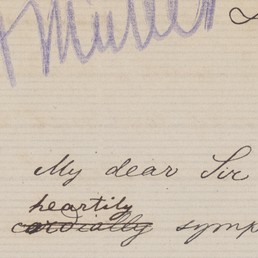 Müller
My dear Sir
heartily
cordially symp